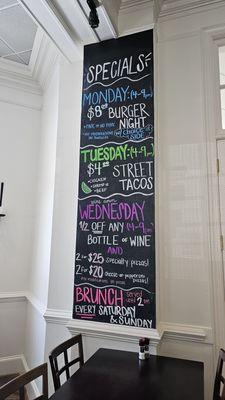 SPECIALS
MONDAY: (4-9pm)
$8 BURGER
NIGHT
W/ CHOICE OF
SIDE
TUESDAY: (4-9pm)
$4 STREET
TACOS
• CHICKEN
• SHRIMP
• BEEF
WEDNESDAY
1/2 OFF ANY
BOTTLE OF WINE
AND
2 FOR $25 specialty pizzas!
2 FOR $20 cheese or pepperoni
pizzas!
BRUNCH SERVED until 2pm
EVERY SATURDAY
& SUNDAY